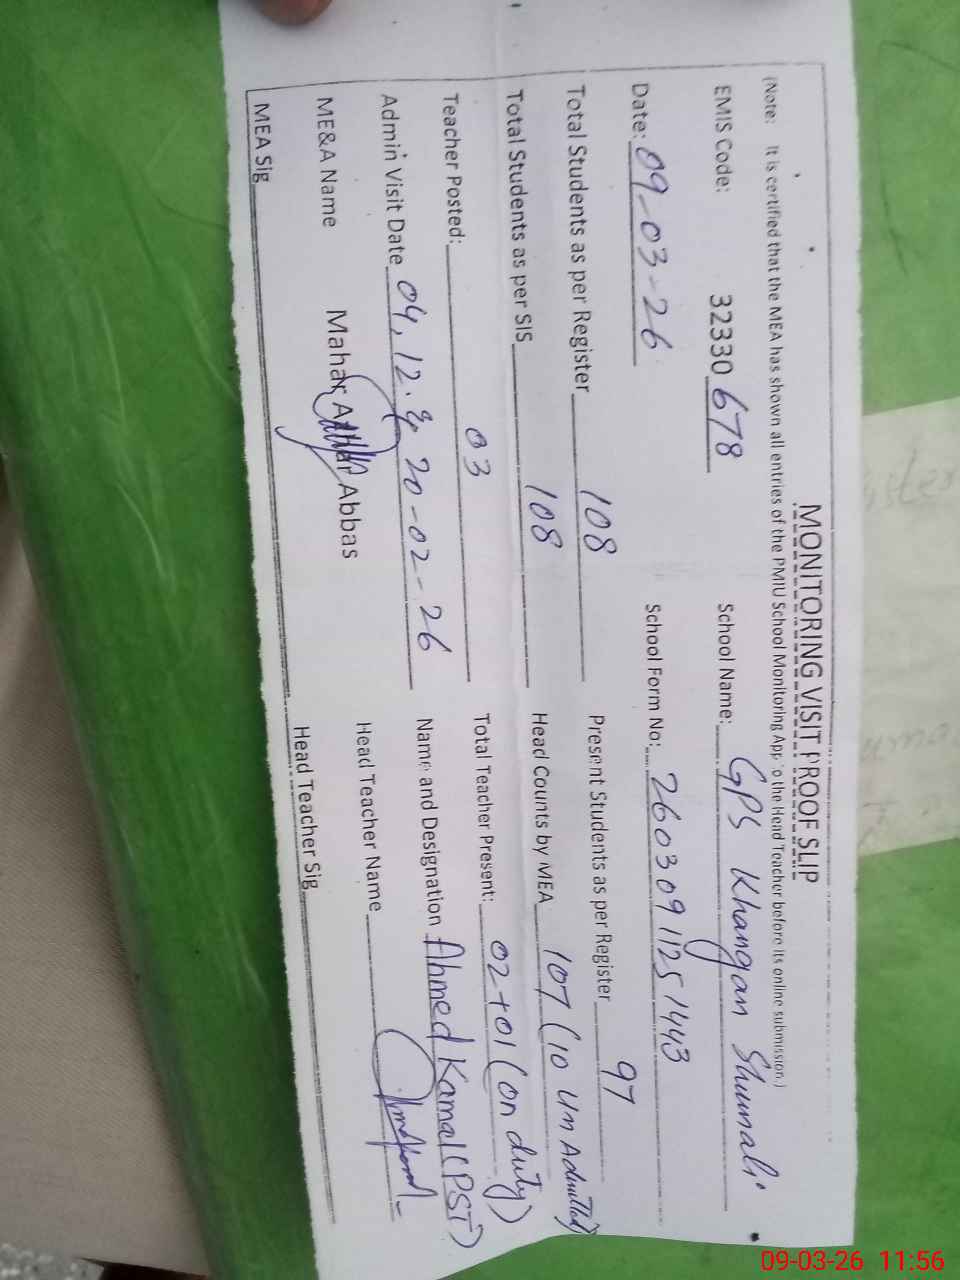 MONITORING VISIT PROOF SLIP
(Note: It is certified that the MEA has shown all entries of the PMIU School Monitoring App to the Head Teacher before its online submission.)
EMIS Code: 32330 678 School Name: GPS Khangan Shumali
Date: 09-03-26 School Form No: 26030911251443
Total Students as per Register 108 Present Students as per Register 97
Total Students as per SIS 108 Head Counts by MEA 107 (10 Un Admitted)
Teacher Posted: 03 Total Teacher Present: 02+01 (on duty)
Admin Visit Date 04, 12. & 20-02-26 Name and Designation Ahmed Kamal (PST)
ME&A Name Mahar Abbas Head Teacher Name
MEA Sig Head Teacher Sig
09-03-26 11:56